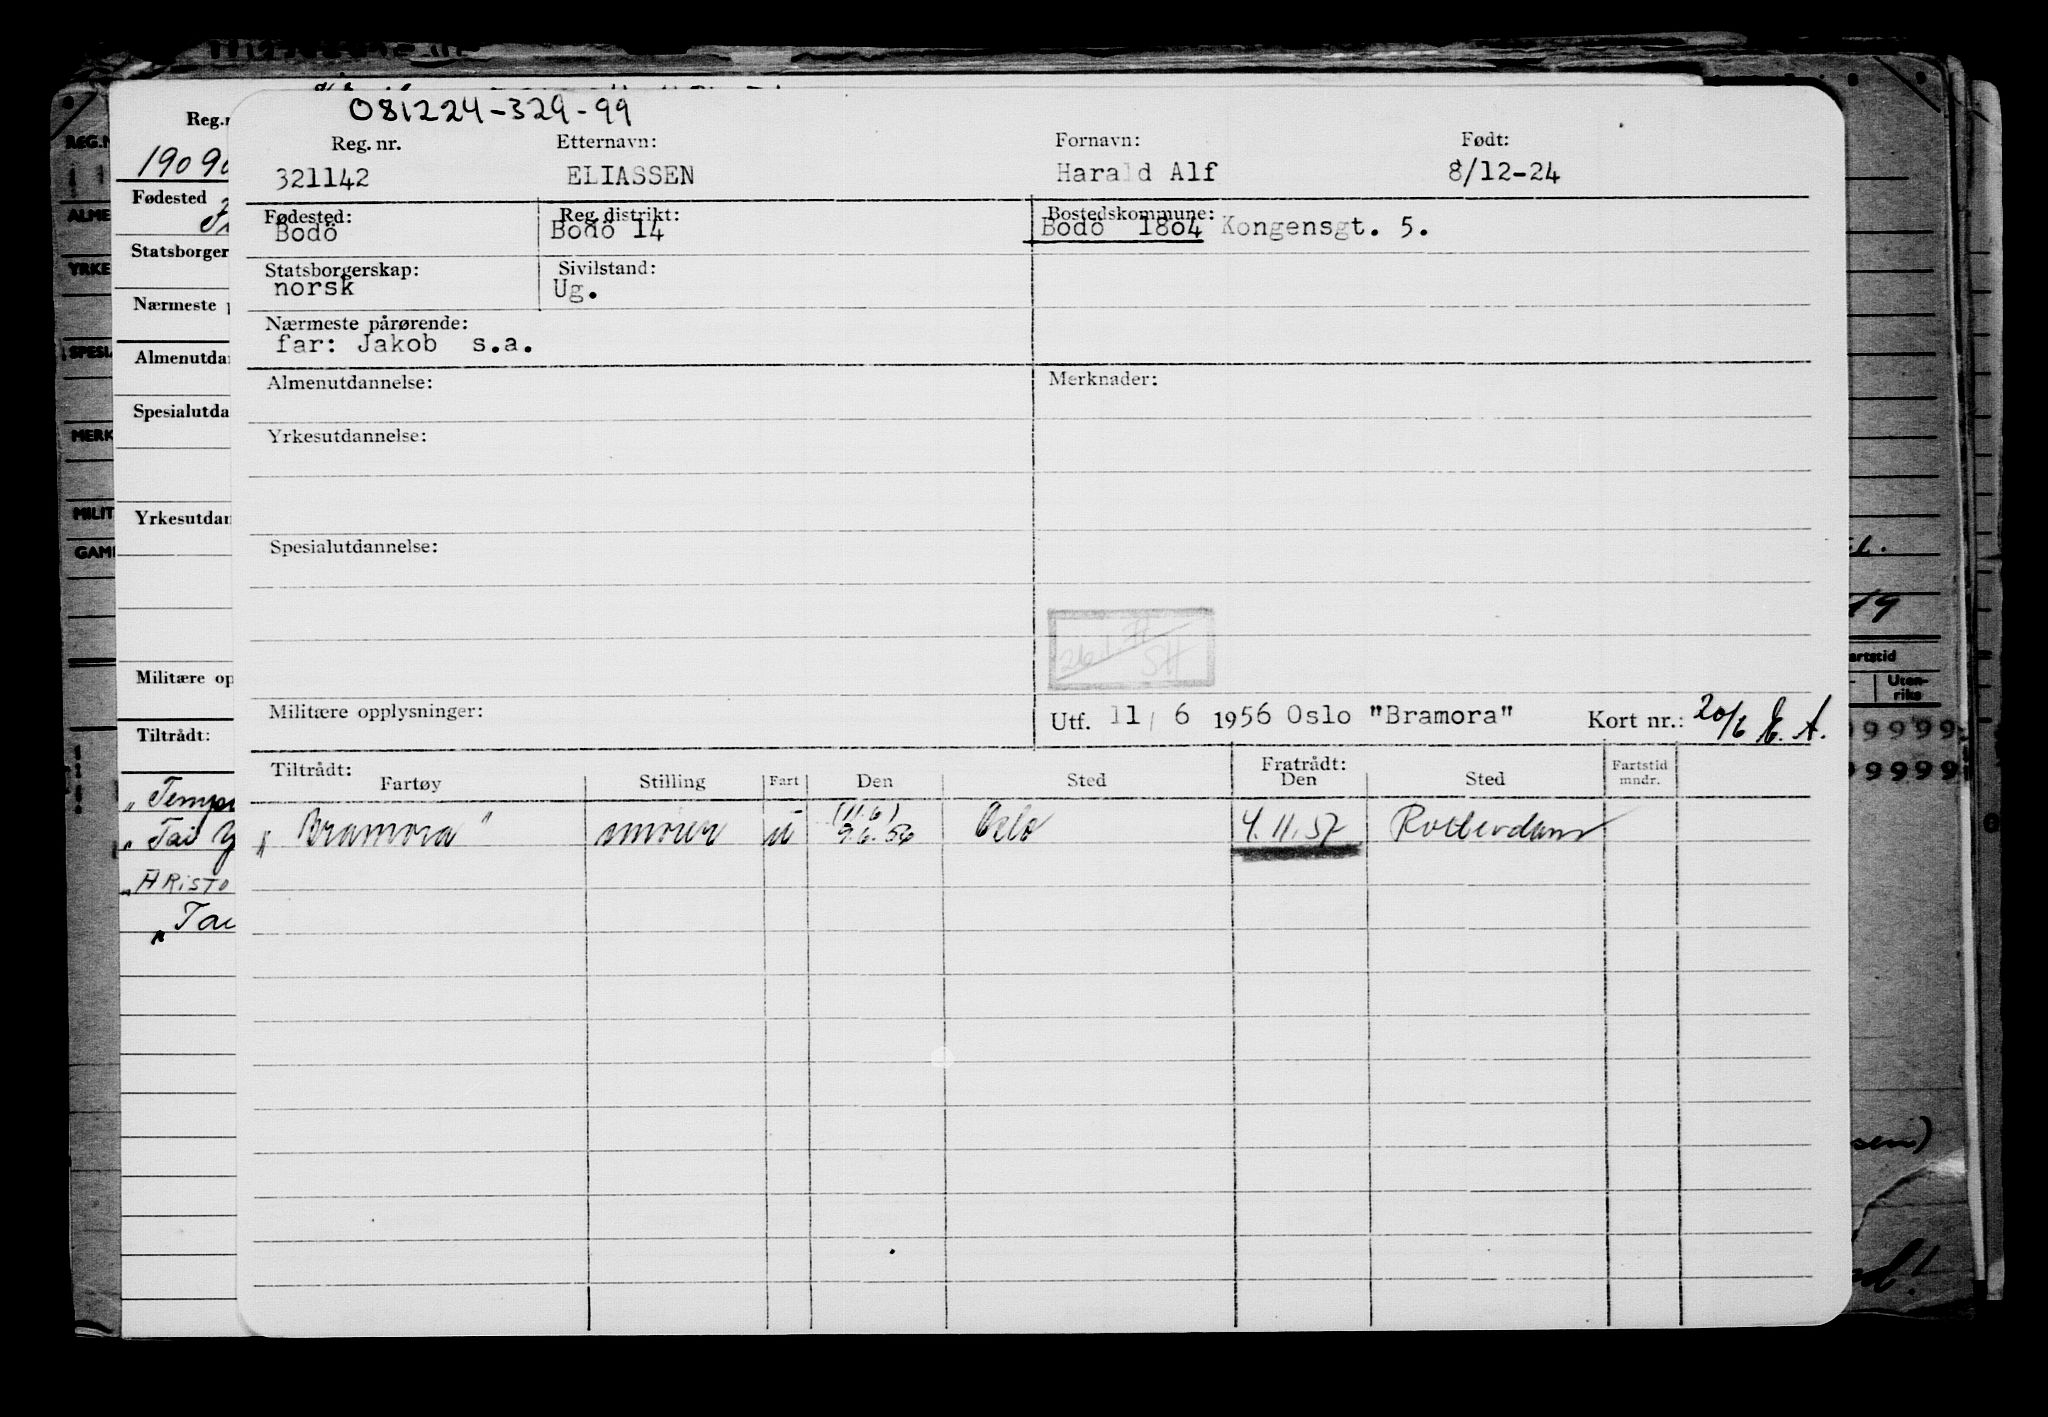 081224-329-99
Reg. nr. Etternavn: Fornavn: Født:
321142 ELIASSEN Harald Alf 8/12-24
Fødested: Reg. distrikt: Bostedskommune:
Bodö Bodö 14 Bodö 1804 Kongensgt. 5.
Statsborgerskap: Sivilstand:
norsk Ug.
Nærmeste pårørende:
far: Jakob s.a.
Almenutdannelse: Merknader:
Yrkesutdannelse:
Spesialutdannelse:
Militære opplysninger: Utf. 11/ 6 1956 Oslo "Bramora" Kort nr.: 20/6 E. A.
Tiltrådt: Fratrådt:
Fartøy Stilling Fart Den Sted Den Sted Fartstid mndr.
(11.6)
„ Bramora " smörer u 9.6.56 Oslo 4.11.57 Rotterdam
Reg.n
19090
Fødested
Statsborger
Nærmeste p
Almenutdan
Spesialutda
Yrkesutdan
Militære op
Tiltrådt:
„ Temp
„ Tai Y
„ ARISTO
„ Tai
REG.N
ALME
YRKE
SPESIA
MERK
MILIT
GAML
19
artstid
Uten-
riks
99999
99999
sen)